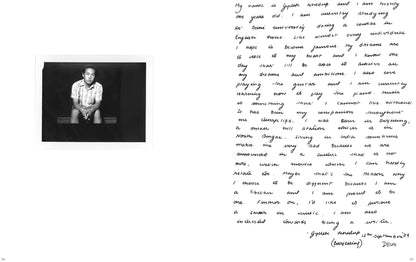 My name is Gyalten Wangdup and I am twenty
one years old. I am currently studying
at Delhi University doing a course in
English Hons. Like almost every individual
I hope to become famous. My dreams are
is near to my heart and I know one
day that I'll be able to achieve all
my dreams and ambitions. I also love
playing the guitar and I am currently
learning how to play the piano. Music
is something that I cannot live without
It has been my companion throughout
my lonely life. I was born in Darjeeling,
a small hill station which is in
North Bengal. Living in India sometimes
makes me very sad because we are
surrounded in a culture that is not
ours, which I can hardly
relate to. Maybe that's the reason why
I choose to be different because I am
a Tibetan and I am proud to be
one. Further on, I'd like to pursue
a career in music. I am also
interested towards being a writer.
12th September
(Darjeeling)